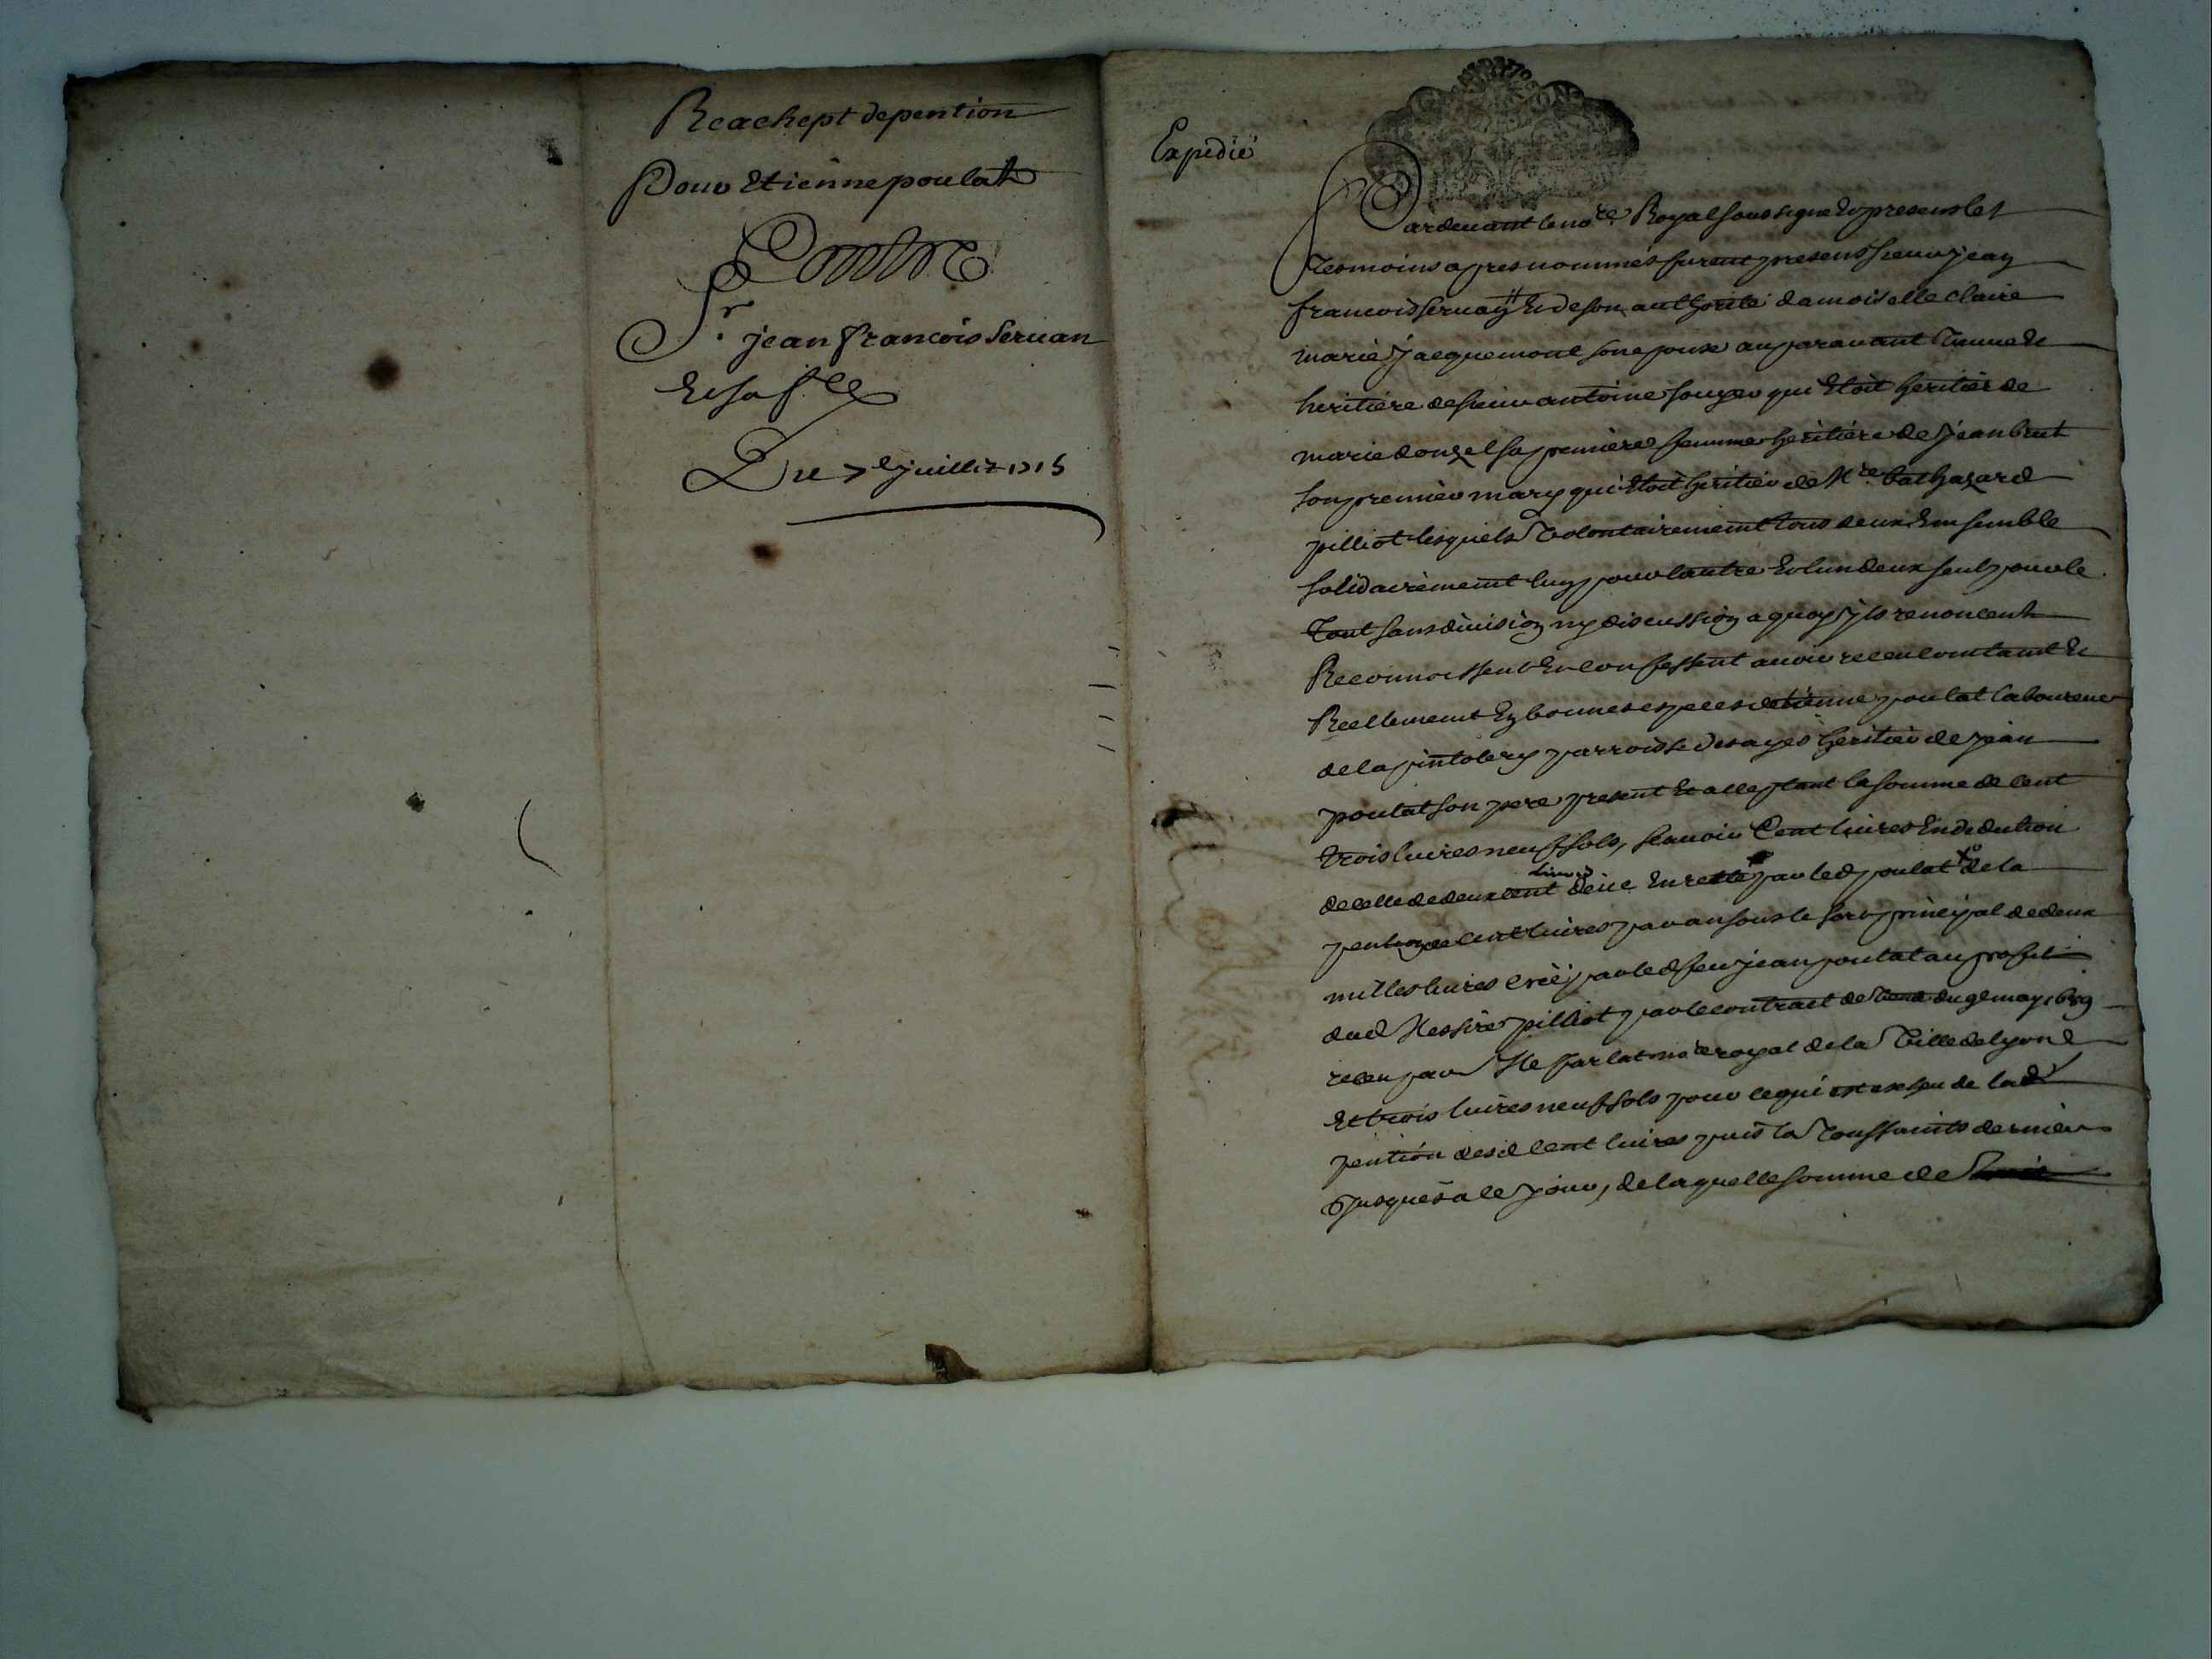 Reachept depention
Pour Etienne poulat
Contre
Sr. jean francois Servan
Et sa f.e
Du 7e juillet 1715
Expedié
Pardevant le no.re Royal soussigne Et presens les
tesmoins apres nommés furent presens sieur jean
francois servan # Et de son authorité damoiselle claire
marie jacquemont son epouse auparavant veuve Et
heritiere de sieur antoine souzer qui Etoit heritier de
marie donzel sa premiere femme heritiere de jean brut
son premier mary qui Etoit heritier de Mre. balthazard
pilliot lesquels volontairement tous deux Ensemble
solidairement lun pour lautre Et lun deux seul pour le
tout sans division ny discussion a quoy ils renoncent
Reconnoissent Et confessent avoir receu comtant Et
Reellement En bonnes especes detienne poulat laboureur
de la pintolery parroisse desayes heritier de jean
poulat son pere present Et acceptant la somme de cent
trois livres neuf sols, scavoir Cent livres En dedution
de celle de deux cent livres deüe En reste par led poulat de la
pention de cent livres par an sous le sort principal de deux
milles livres creéé par led feu jean poulat au profit
dud Messire pilliot par le contract de vente du 9e may 1689
receu par Me farlat no.re royal de la ville de lyon
Et trois livres neuf sols pour ce qui est escheu de lad
pention desd cent livres puis la toussaints dernier
Jusques a ce jour, de laquelle somme de